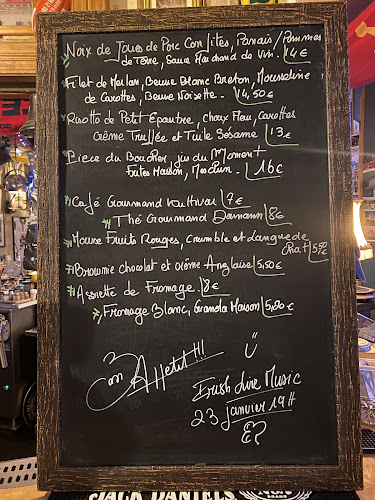 Noix de Joues de Porc Confites, Panais / Pommes
de Terre, Sauce Marchand de Vin. 14€
Filet de Merlan, Beurre Blanc Breton, Mousseline
de Carottes, Beurre Noisette. 14,50€
Risotto de Petit Epeautre, choux Fleu, carottes
crème Truffée et Tuile Sésame. 13€
Piece du Boucher, jus du Moment
Frites Maison, Mesclun. 16€
Café Gourmand Kulthivar 7€
Thé Gourmand Dammann 8€
Mousse Fruits Rouges, Crumble et Langue de
Chat 5,50€
Brownie chocolat et crème Anglaise 5,50€
Assiette de Fromage. 8€
Fromage Blanc, Granola Maison 5,50€
Bon Appetit!!!
Irish Live Music
23 janvier 19H
JACK DANIEL'S